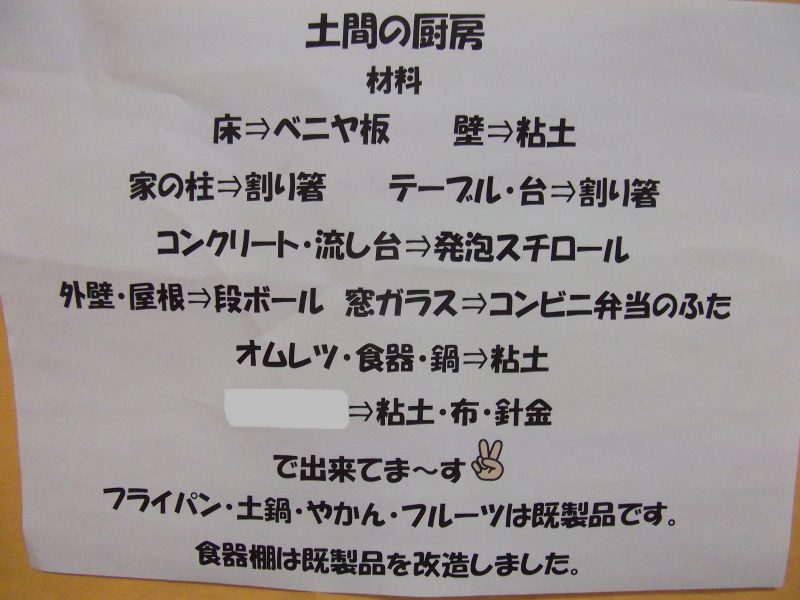 土間の厨房
材料
床⇒ベニヤ板　　壁⇒粘土
家の柱⇒割り箸　　テーブル・台⇒割り箸
コンクリート・流し台⇒発泡スチロール
外壁・屋根⇒段ボール　窓ガラス⇒コンビニ弁当のふた
オムレツ・食器・鍋⇒粘土
⇒粘土・布・針金
で出来てま～す✌
フライパン・土鍋・やかん・フルーツは既製品です。
食器棚は既製品を改造しました。